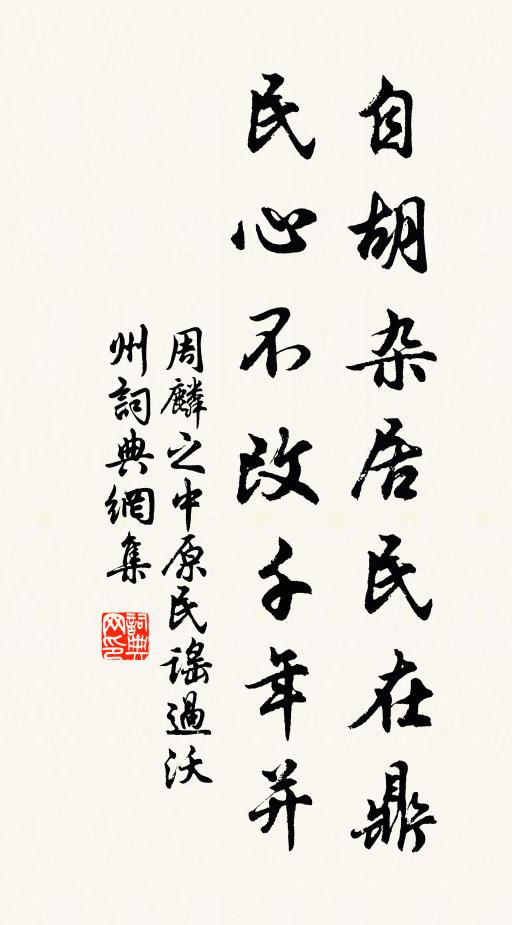 自胡杂居民在鼎
民心不改千年并
周麟之中原民謠過沃
州詞典網集
詞典网印